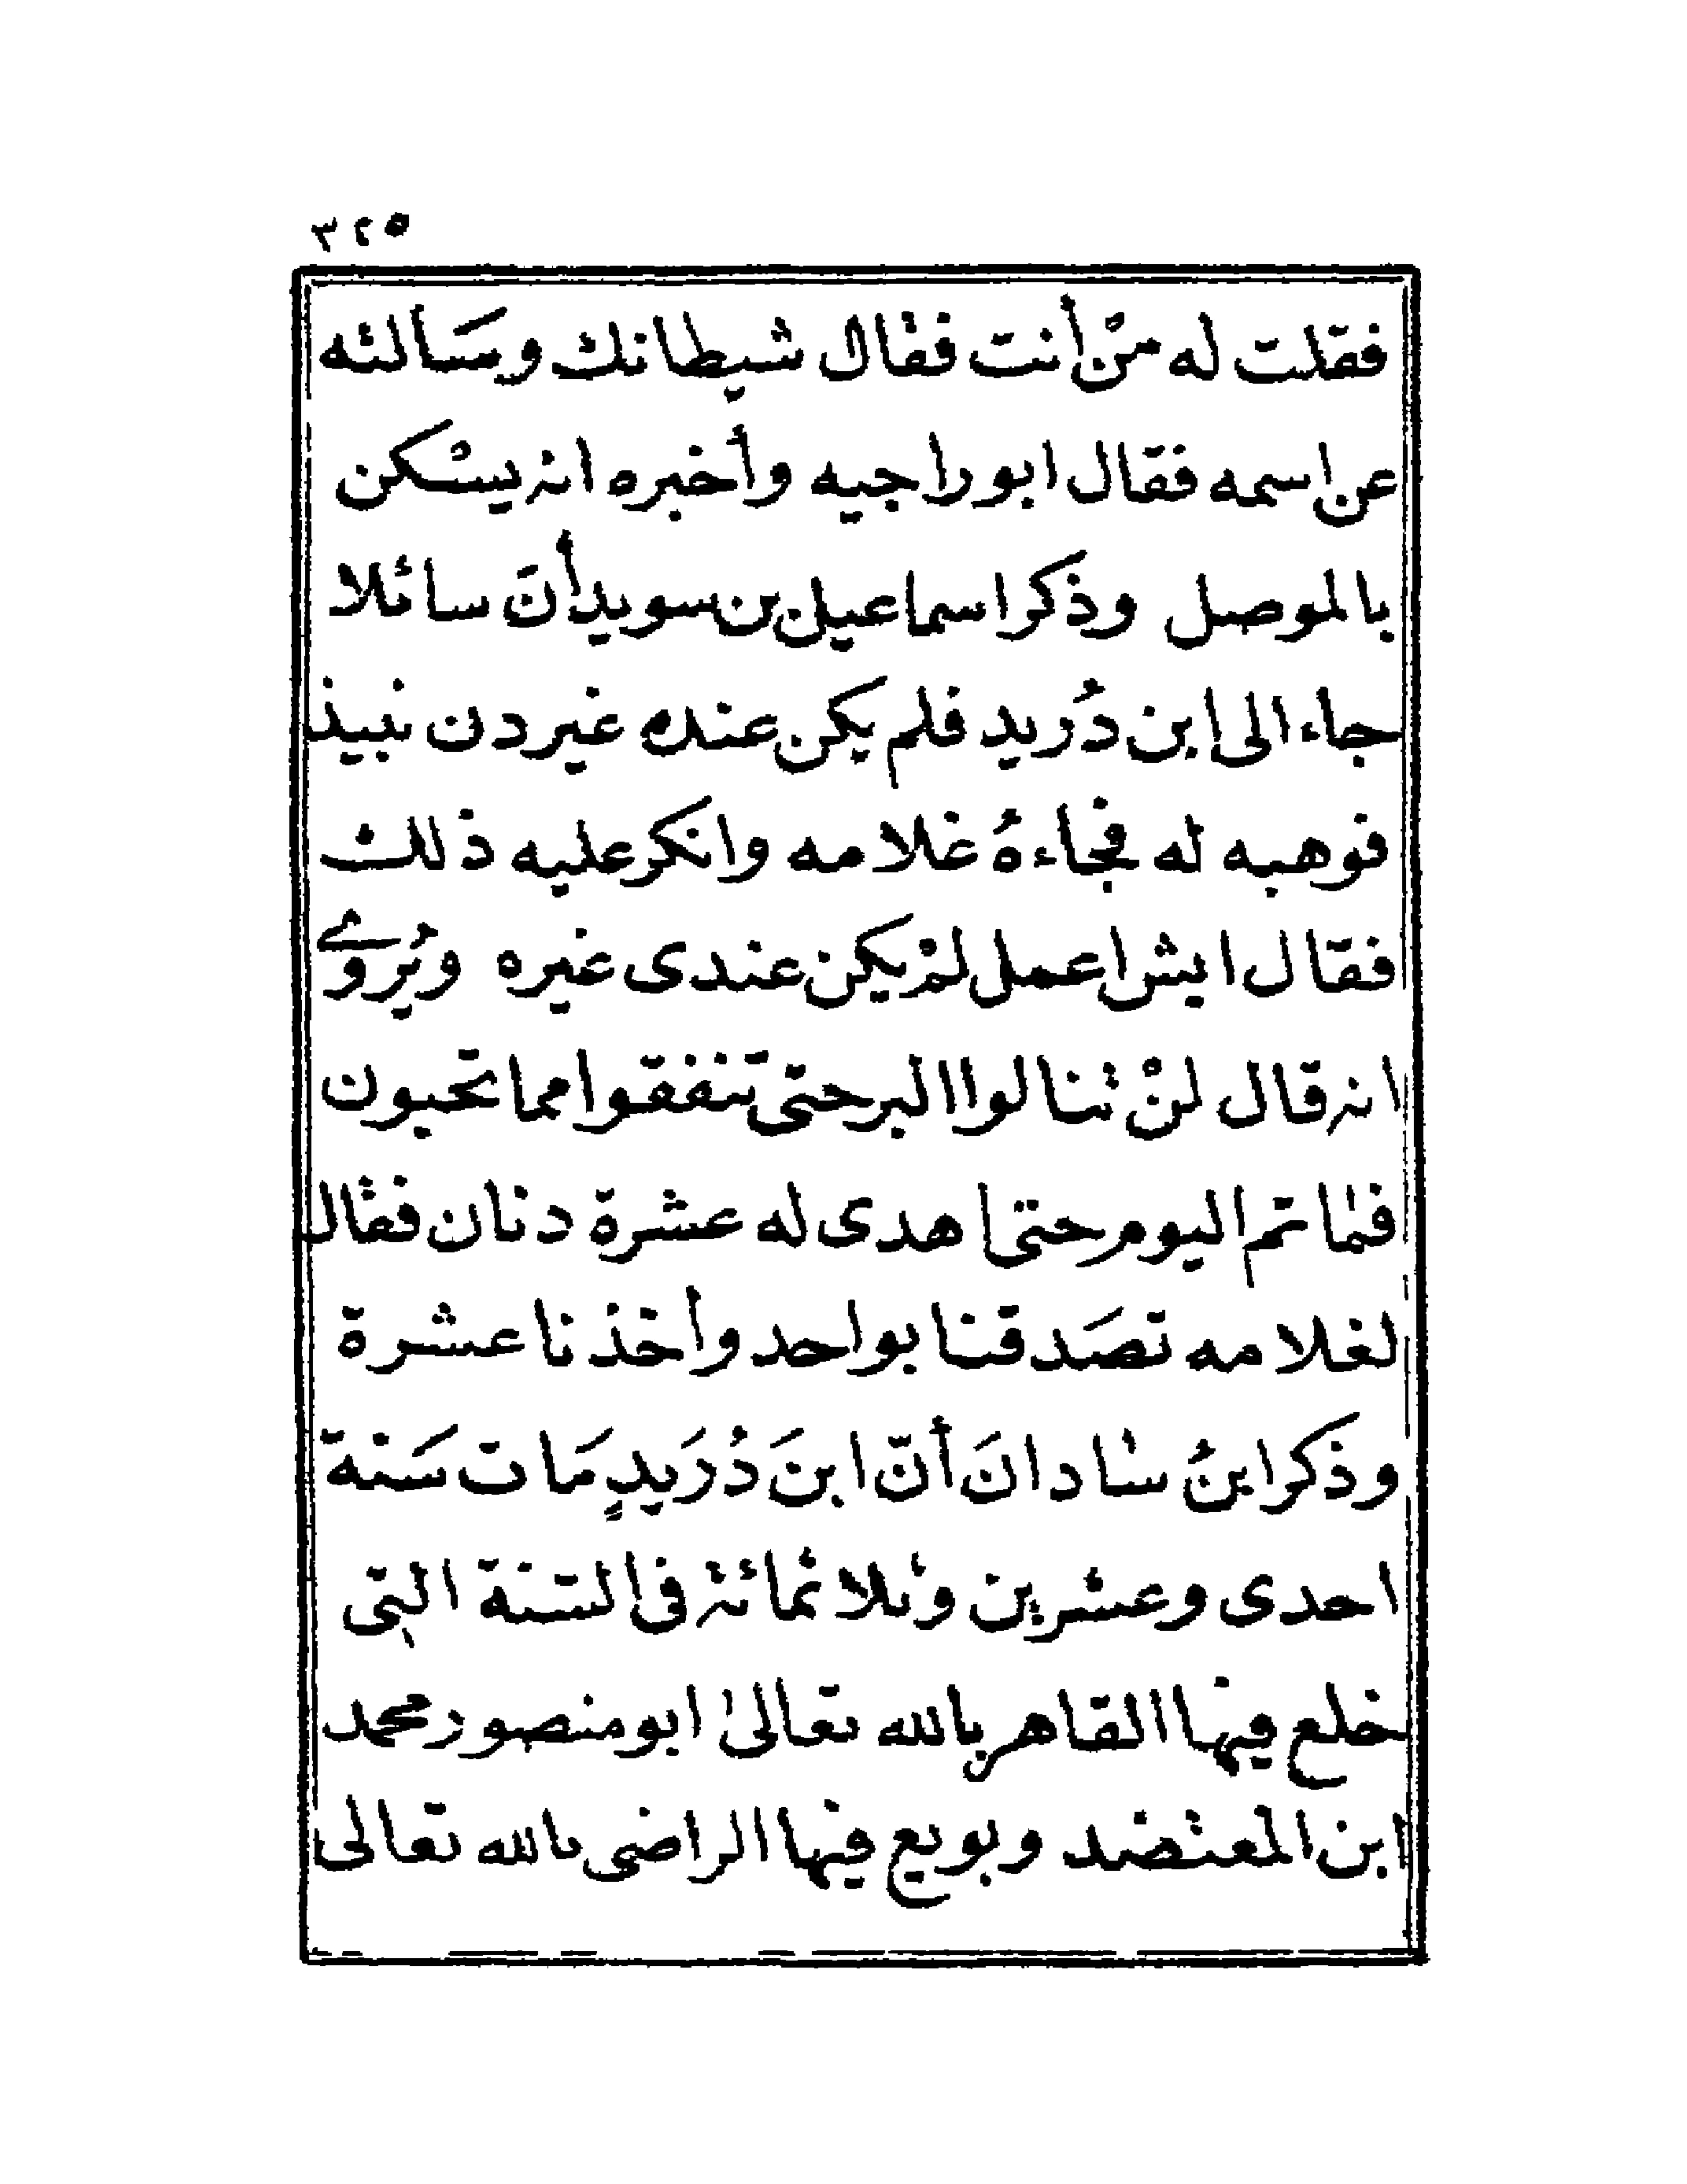 ٣٢٥
فقلت له منْ أنت فقال شيطانك وسَألته
عن اسمه فقال ابو راجيه وأخبره انه يسْكن
بالموصل وذكر اسماعيل بن سويد أنَ سائلا
جاء الى ابن دُريد فلم يكن عنده غير دن نبيذ
فوهبه له فجاءهُ غلامه وانكر عليه ذلك
فقال ايش اعمل لمْ يكن عندى غيره ويُروٰے
انه قال لنْ تنالوا البر حتى تنفقوا مما تحبون
فما تم اليوم حتى اهدى له عشرة دنان فقال
لغلامه تصَدقنا بواحد وأخذنا عشرة
وذكر ابنُ شادانَ أنّ ابنَ دُرَيدٍ مَات سَنة
احدى وعشرين وثلاثمائة فى السنة التى
خلع فيها القاهر بالله تعالىٰ ابو منصور محمد
ابن المعتضد وبويع فيها الراضى بالله تعالى